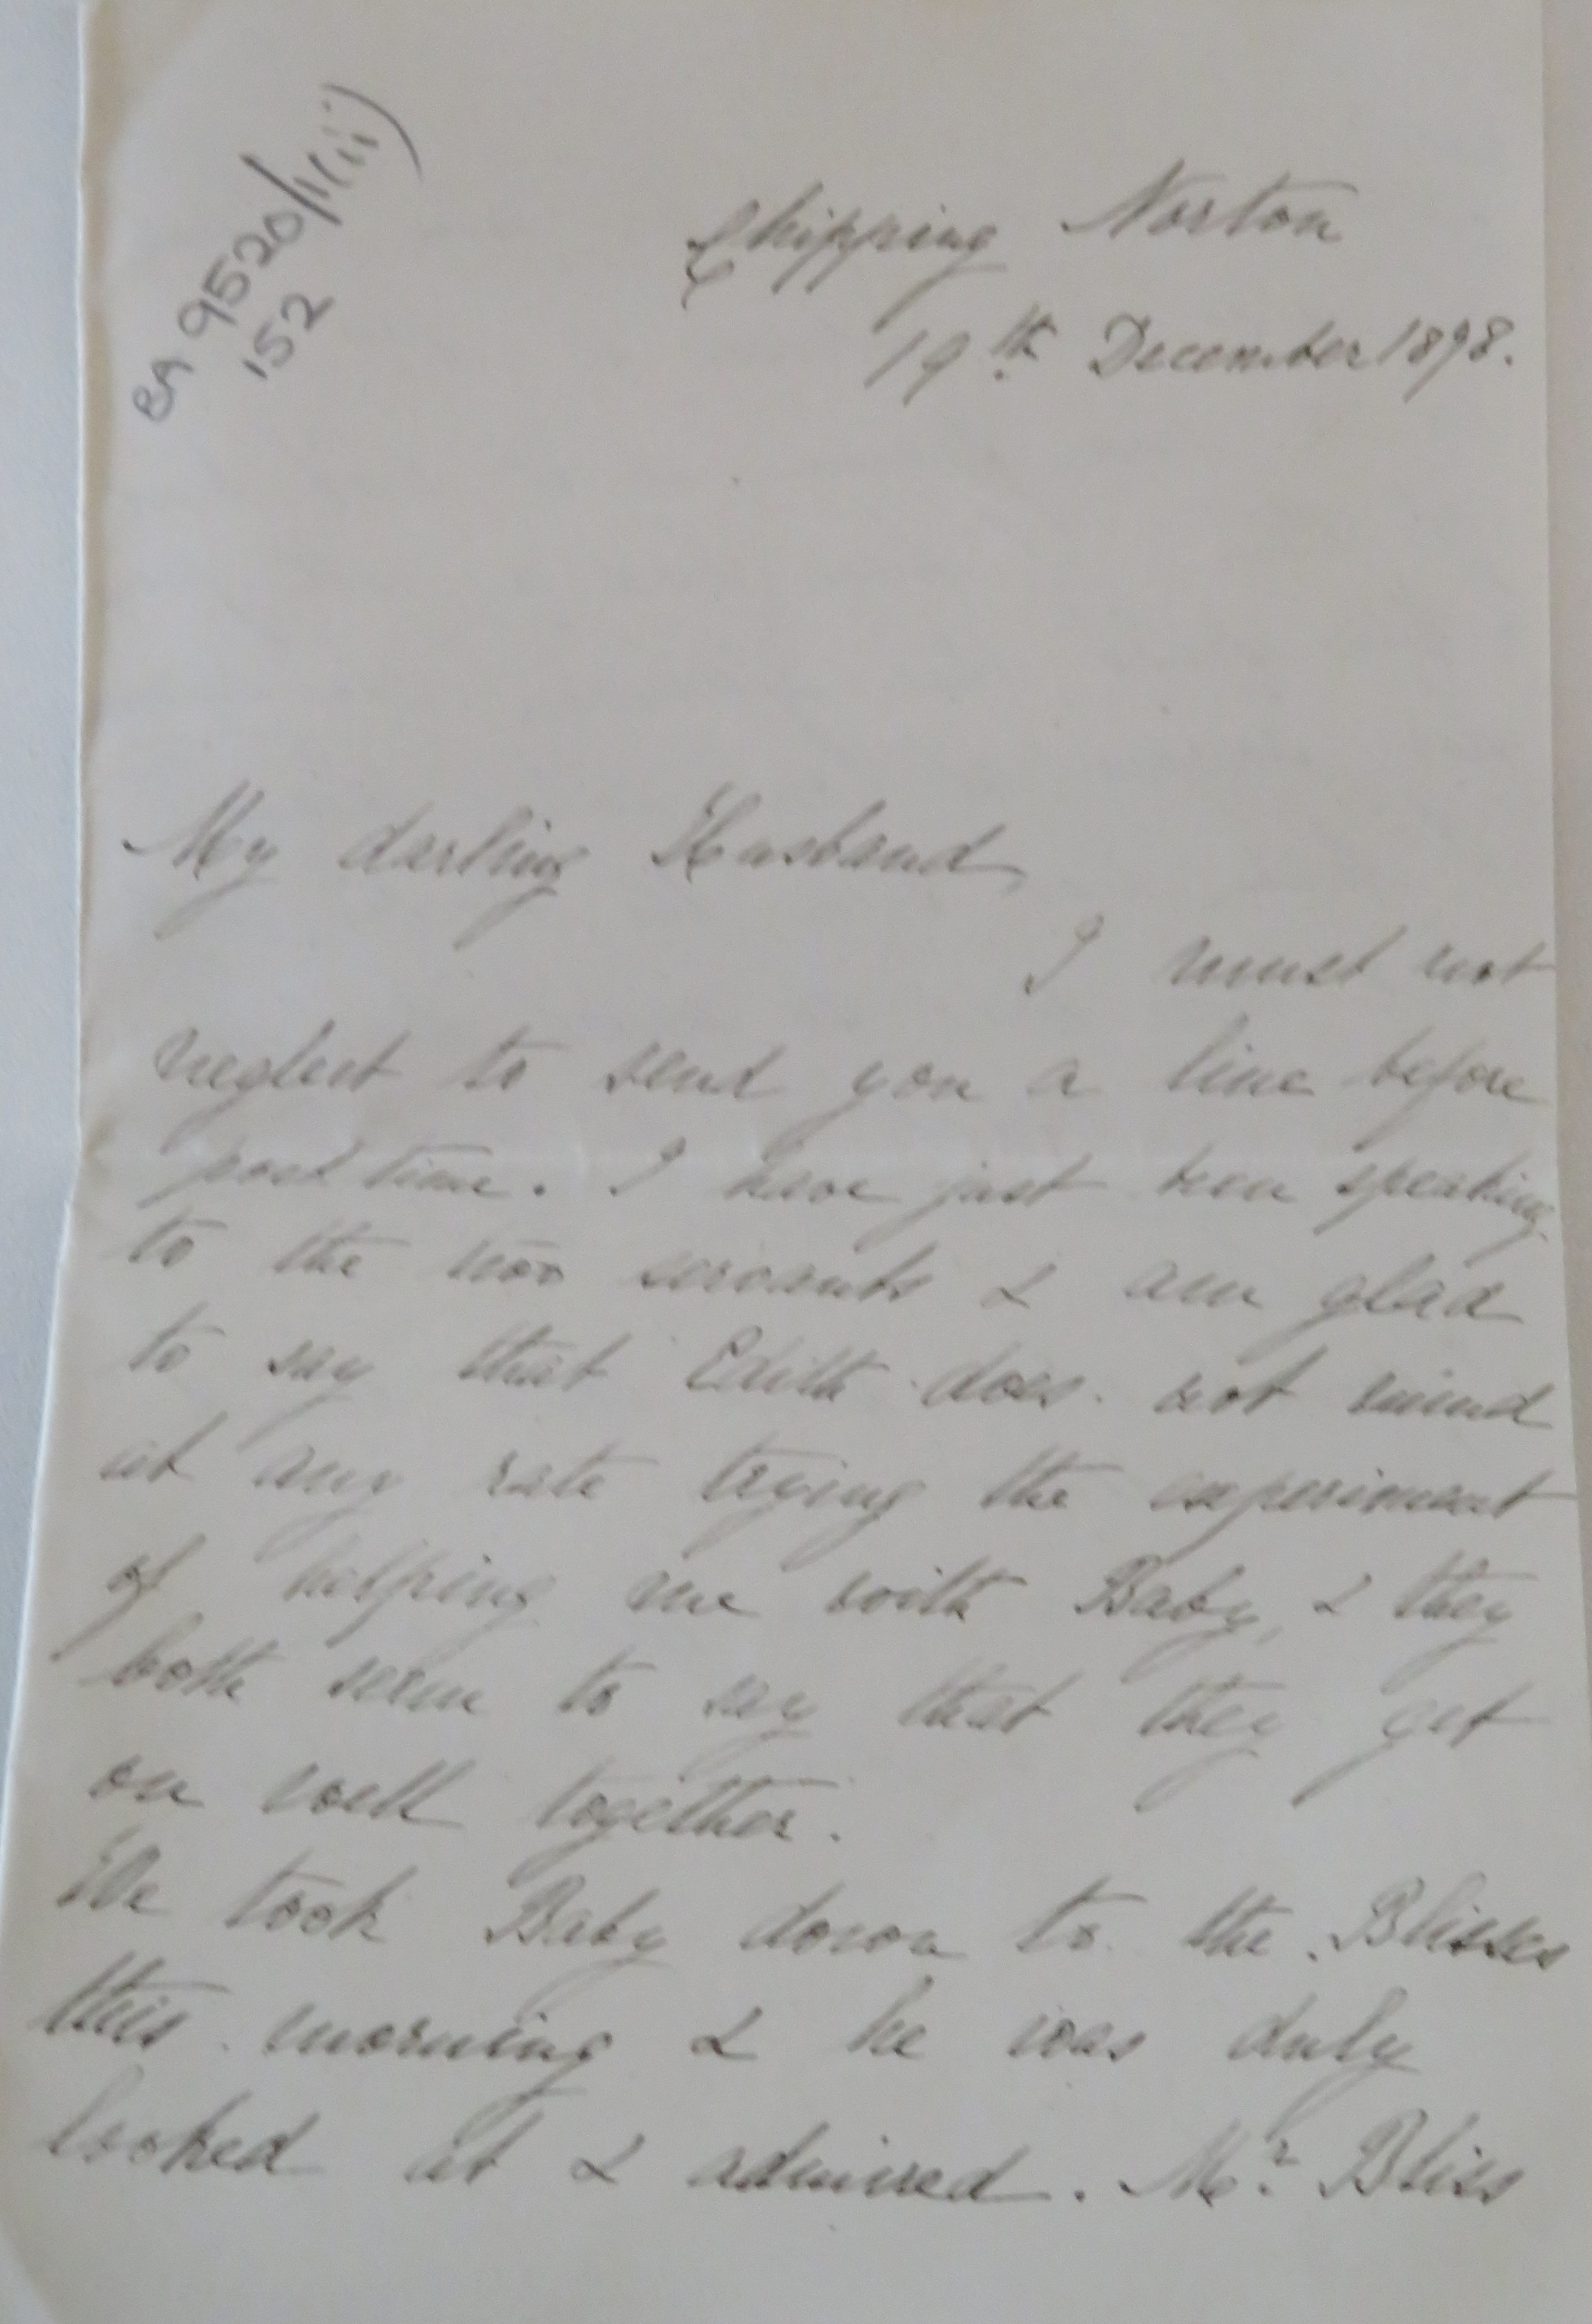 BA 9520/1(iii)
152
Chipping Norton
19th December 1898.
My darling Husband,
I must not
neglect to send you a line before
post time. I have just been speaking
to the two servants & am glad
to say that Edith does not mind
at any rate trying the experiment
of helping me with Baby, & they
both seem to say that they get
on well together.
We took Baby down to the Blisses
this morning & he was duly
looked at & admired. Mr. Bliss